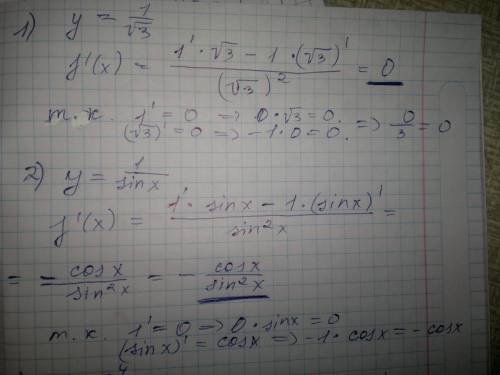 1) y = 1/√3
f'(x) = (1' · √3 − 1 · (√3)')/(√3)² = 0
т.к. 1' = 0 => 0 · √3 = 0.
(√3)' = 0 => −1 · 0 = 0. => 0/3 = 0
2) y = 1/sin x
f'(x) = (1' · sin x − 1 · (sin x)')/sin²x =
= − cos x/sin²x = − cos x/sin²x
т.к. 1' = 0 => 0 · sin x = 0
(sin x)' = cos x => −1 · cos x = − cos x